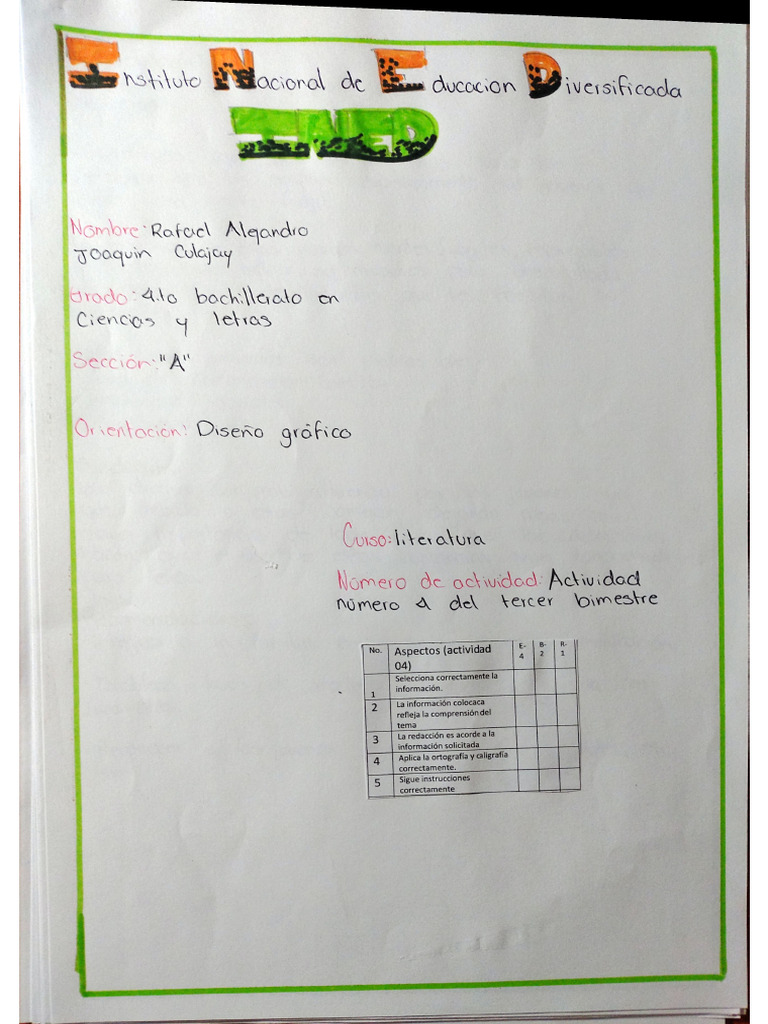 Instituto Nacional de Educacion Diversificada
INED
Nombre: Rafael Alejandro
Joaquin Culajay
Grado: 4.to bachillerato en
Ciencias y letras
Sección: "A"
Orientación: Diseño gráfico
Curso: literatura
Número de actividad: Actividad
número 4 del tercer bimestre
No. Aspectos (actividad 04) E-4 B-2 R-1
1 Selecciona correctamente la información.
2 La información colocaca refleja la comprensión del tema
3 La redacción es acorde a la información solicitada
4 Aplica la ortografía y caligrafía correctamente.
5 Sigue instrucciones correctamente